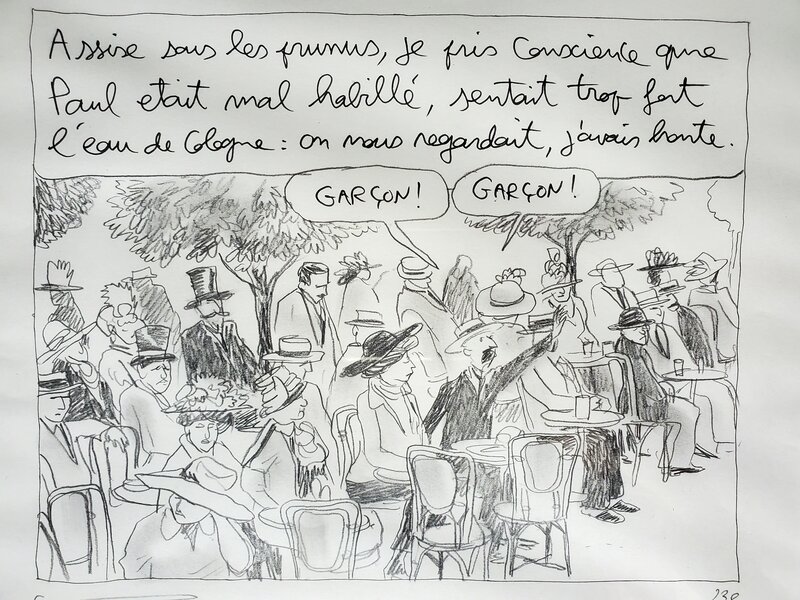 Assise sous les prunus, je pris conscience que
Paul etait mal habillé, sentait trop fort
l'eau de Cologne : on nous regardait, j'avais honte.
GARÇON !
GARÇON !